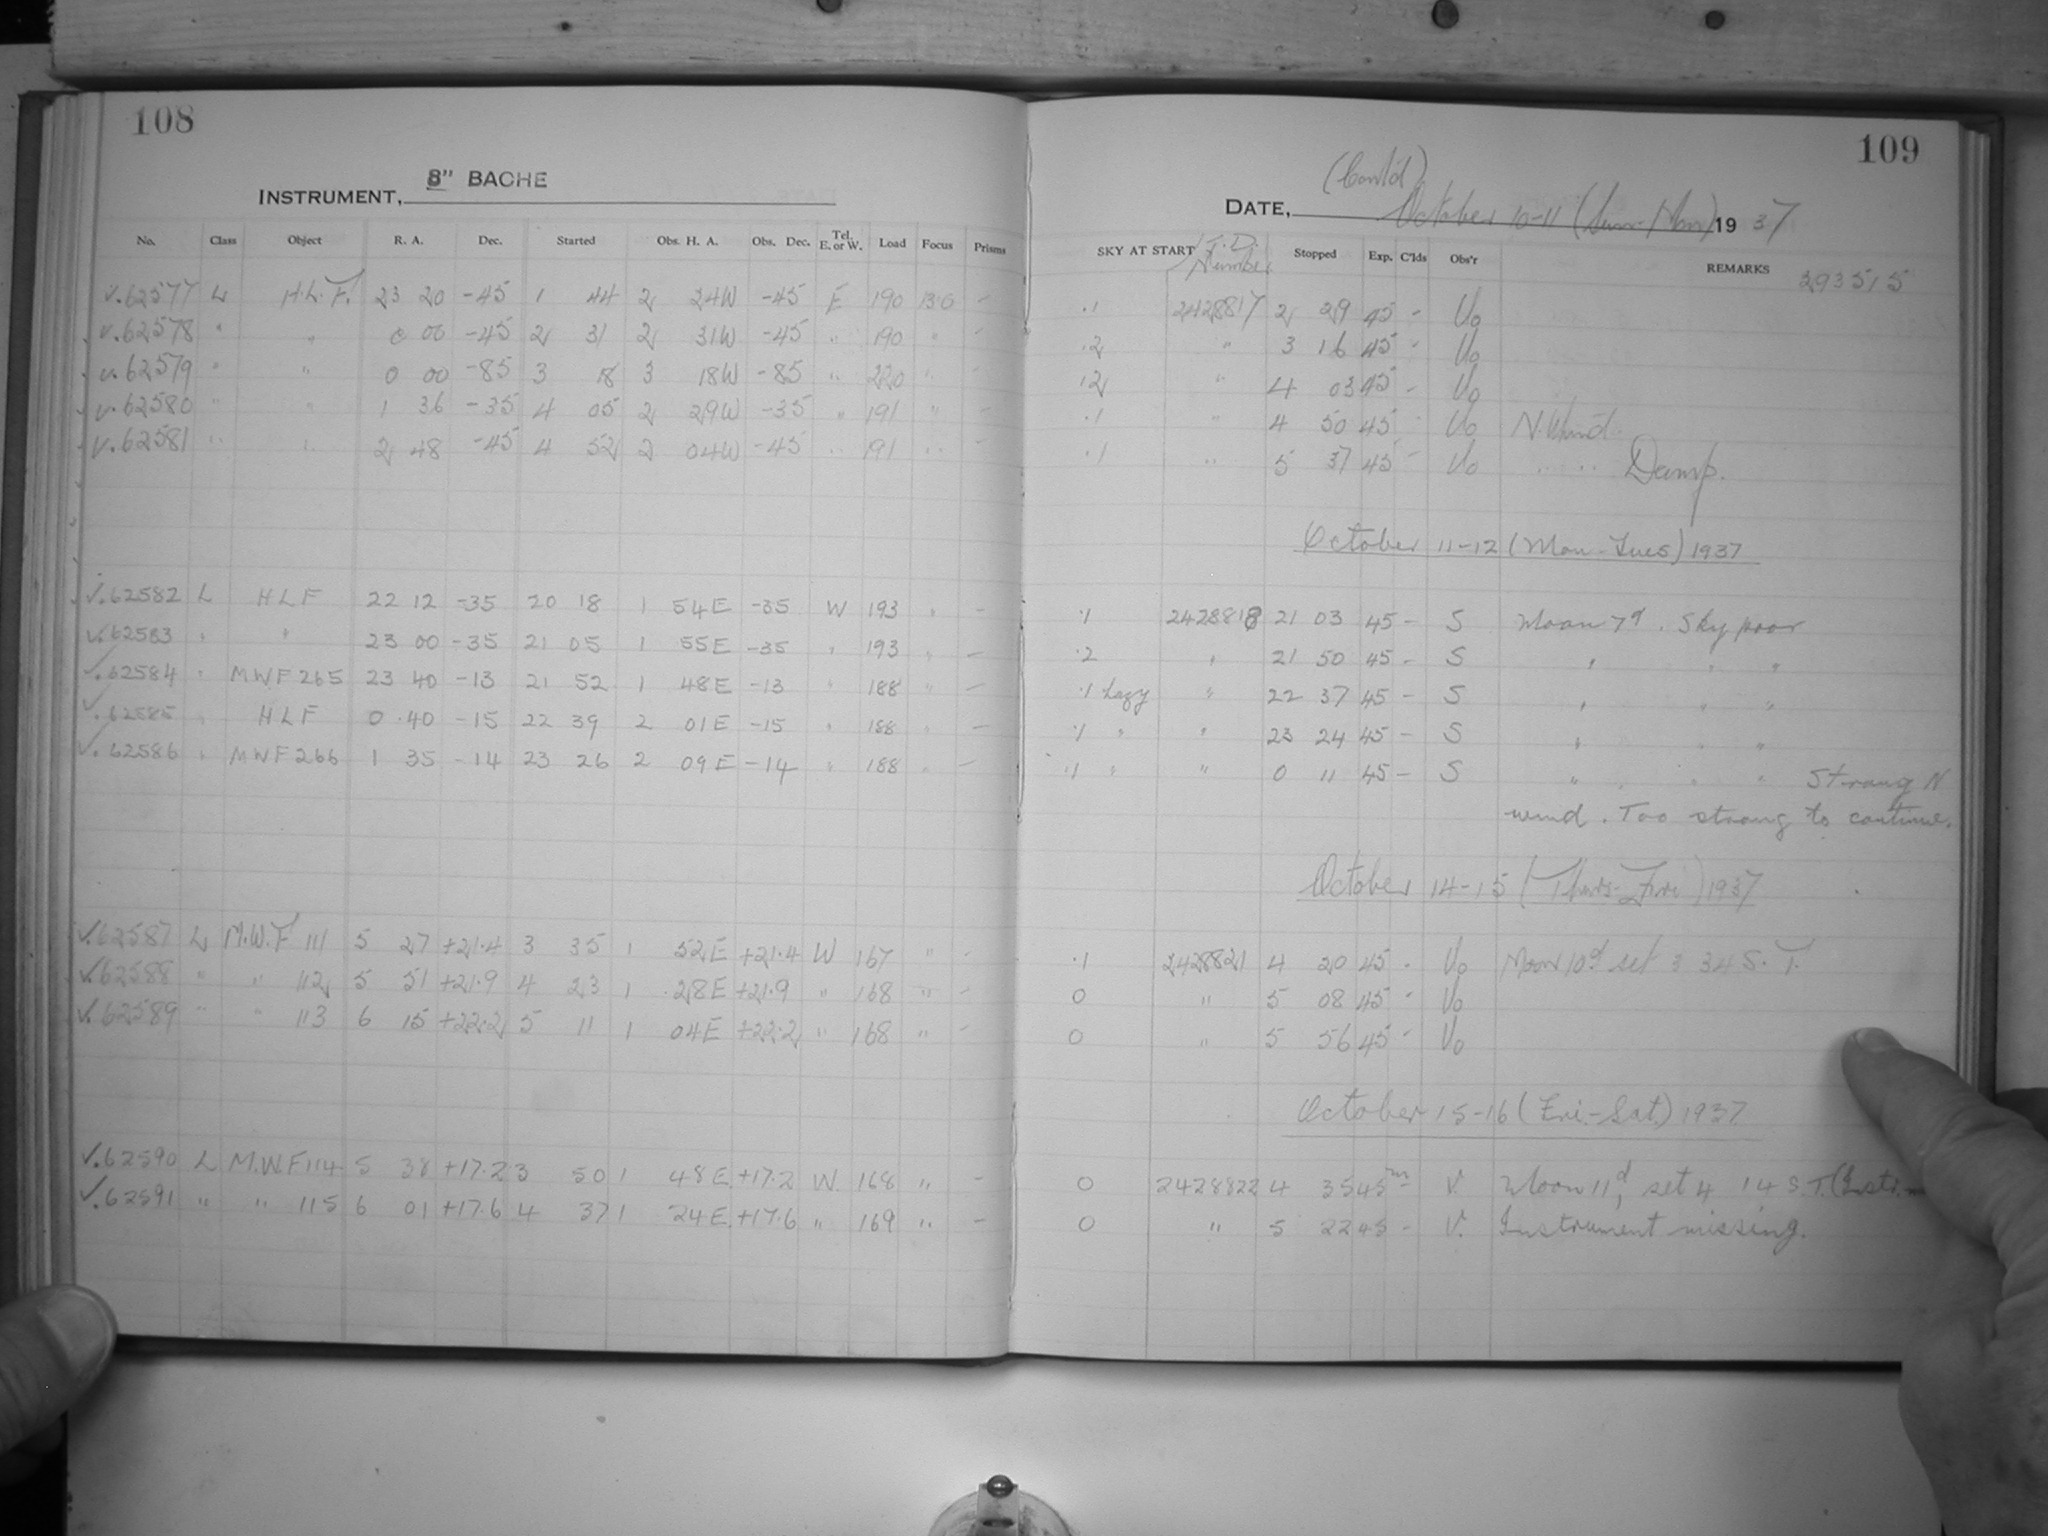 108
INSTRUMENT, 8" BACHE
No. Class Object R. A. Dec. Started Obs. H. A. Obs. Dec. Tel. E. or W. Load Focus Prisms
v.62577 L H.L.F. 23 20 -45 1 44 2 24W -45 E 190 13.0 -
v.62578 " " 0 00 -45 2 31 2 31W -45 " 190 " -
v.62579 " " 0 00 -85 3 18 3 18W -85 " 220 " -
v.62580 " " 1 36 -35 4 05 2 29W -35 " 191 " -
v.62581 " " 2 48 -45 4 52 2 04W -45 " 191 " -
v.62582 L HLF 22 12 -35 20 18 1 54E -35 W 193 " -
v.62583 " " 23 00 -35 21 05 1 55E -35 " 193 " -
v.62584 " MWF 265 23 40 -13 21 52 1 48E -13 " 188 " -
v.62585 " HLF 0 40 -15 22 39 2 01E -15 " 188 " -
v.62586 " MWF 266 1 35 -14 23 26 2 09E -14 " 188 " -
v.62587 L M.W.F 111 5 27 +21.4 3 35 1 52E +21.4 W 167 " -
v.62588 " " 112 5 51 +21.9 4 23 1 28E +21.9 " 168 " -
v.62589 " " 113 6 15 +22.2 5 11 1 04E +22.2 " 168 " -
v.62590 L M.W.F 114 5 38 +17.2 3 50 1 48E +17.2 W 168 " -
v.62591 " " 115 6 01 +17.6 4 37 1 24E +17.6 " 169 " -
109
(Cont'd)
DATE, October 10-11 (Sun-Mon) 1937
SKY AT START J.D. Number Stopped Exp. C'lds Obs'r REMARKS 293515
.1 2428817 2 29 45 - Uo
.2 " 3 16 45 - Uo
.2 " 4 03 45 - Uo
.1 " 4 50 45 - Uo N. Wind.
.1 " 5 37 45 - Uo " " Damp.
October 11-12 (Mon-Tues) 1937
.1 2428818 21 03 45 - S Moon 7d. Sky poor
.2 " 21 50 45 - S " " "
.1 hazy " 22 37 45 - S " " "
.1 " " 23 24 45 - S " " "
.1 " " 0 11 45 - S " " " Strong N
wind. Too strong to continue.
October 14-15 (Thurs-Fri) 1937
.1 2428821 4 20 45 - Uo Moon 10d set 3 34 S.T.
0 " 5 08 45 - Uo
0 " 5 56 45 - Uo
October 15-16 (Fri.-Sat.) 1937
0 2428822 4 35 45m - V. Moon 11d, set 4 14 S.T.
0 " 5 22 45 - V. Instrument missing.